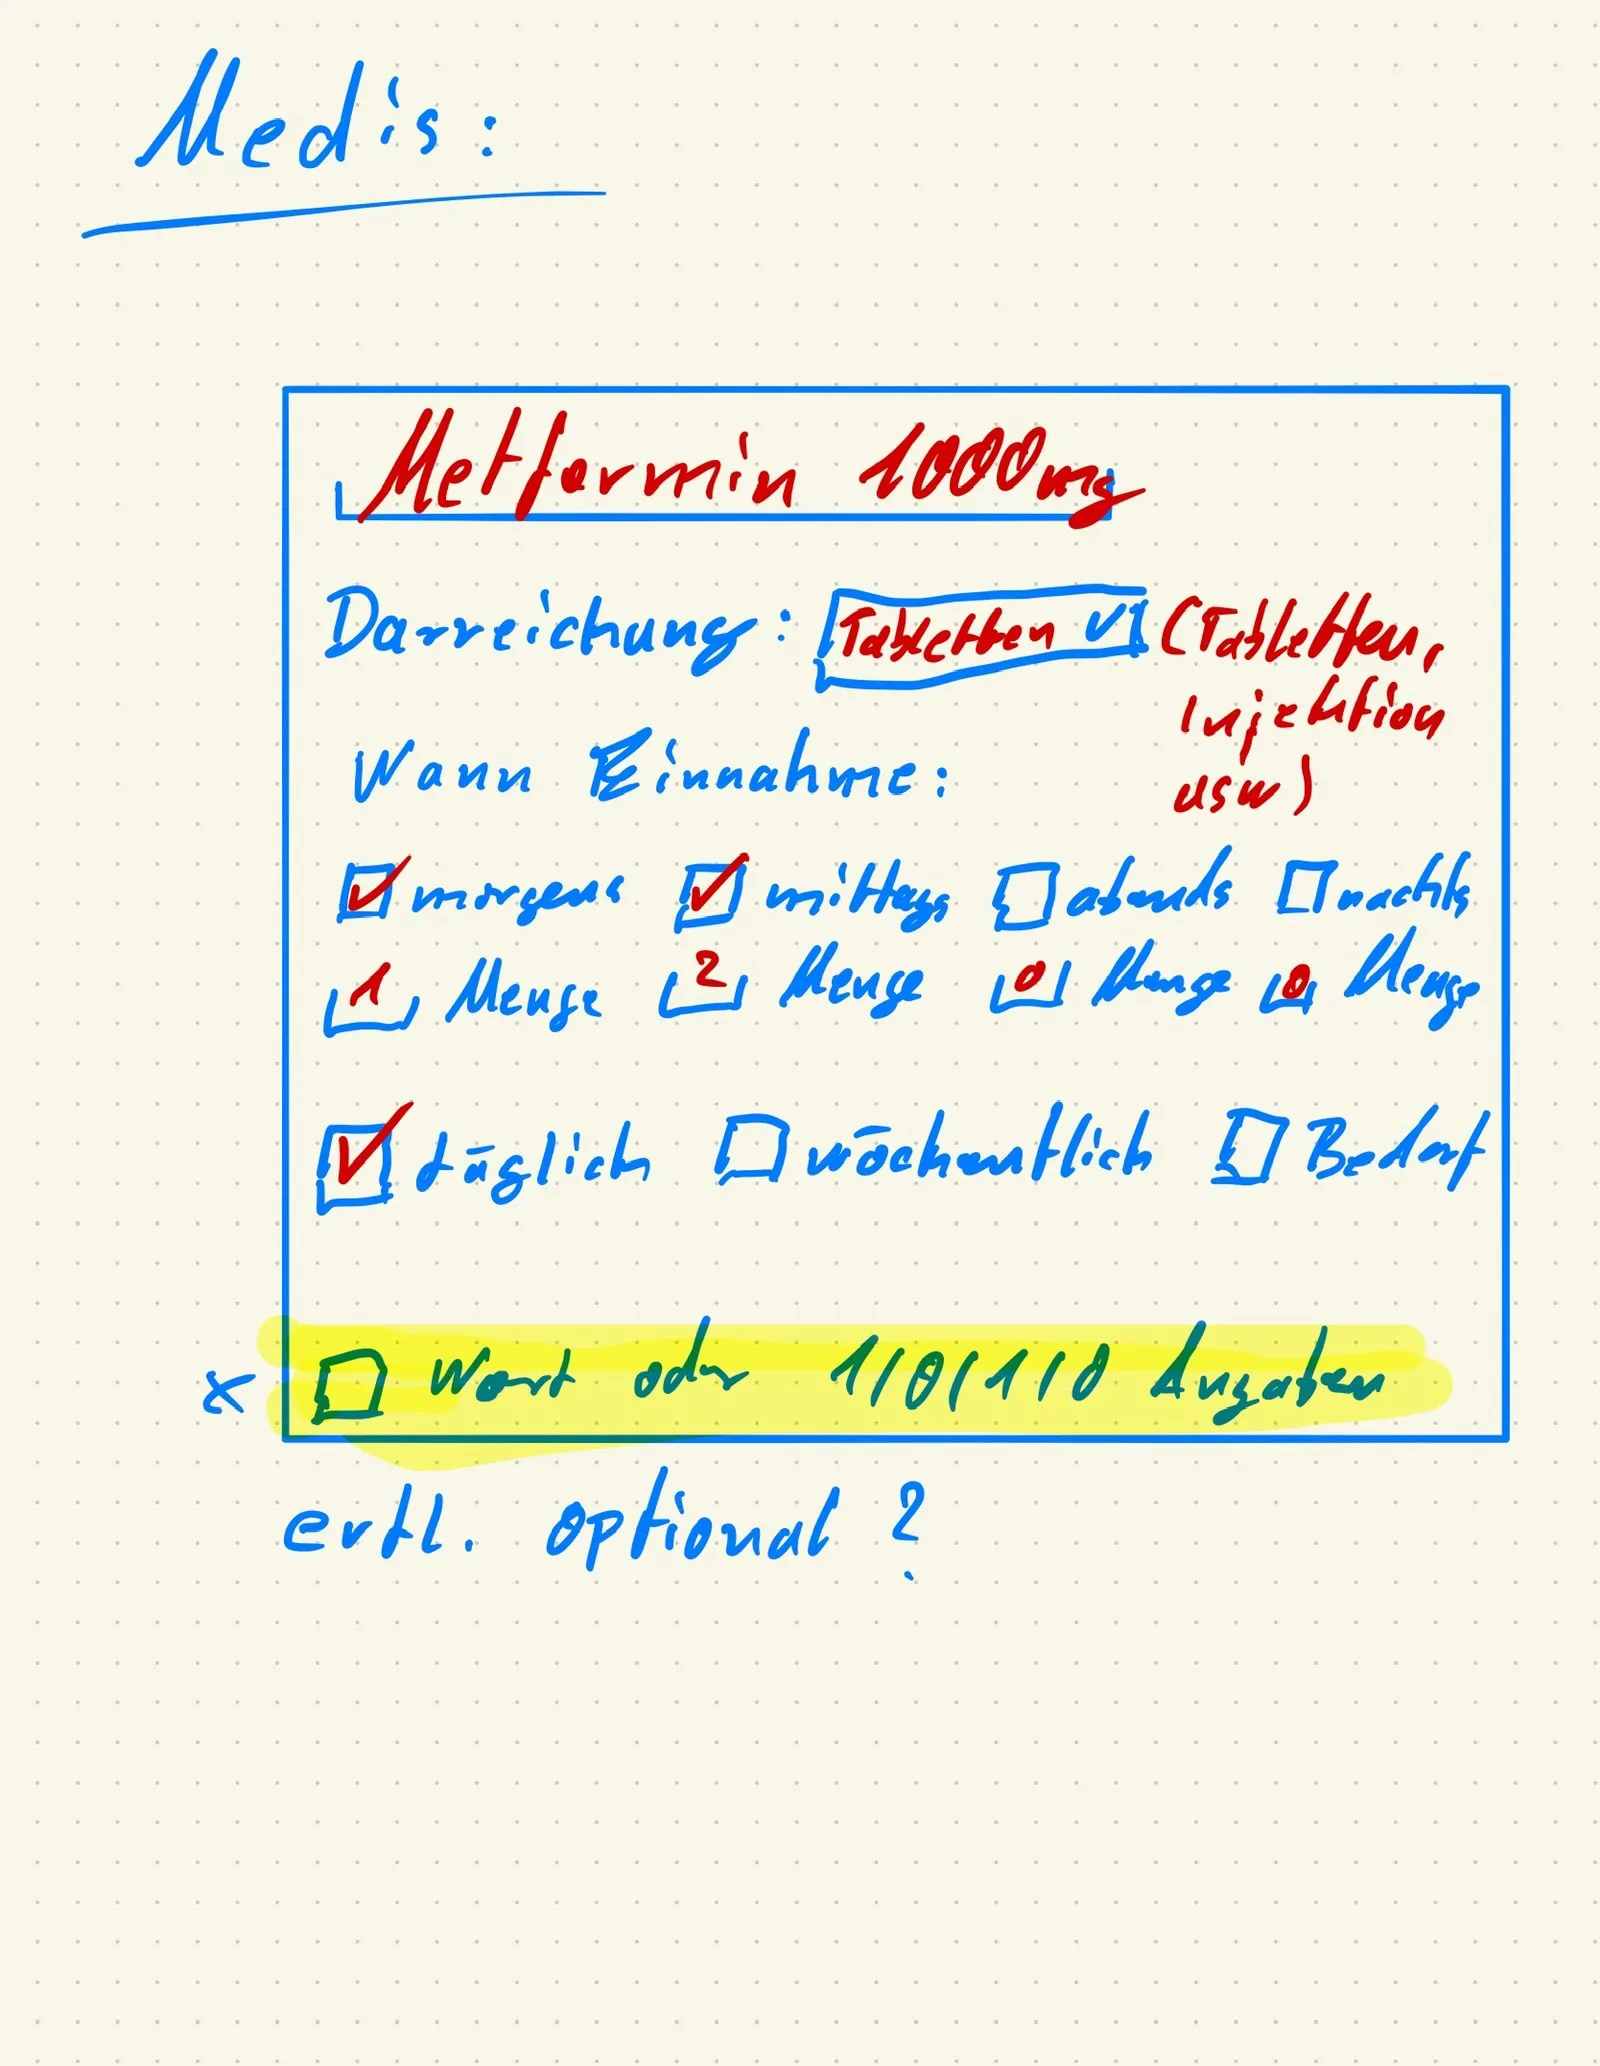 Medis:
Metformin 1000mg
Darreichung: Tabletten (Tabletten,
Injektion
usw)
Wann Einnahme:
morgens mittags abends nachts
1 Menge 2 Menge 0 Menge 0 Menge
täglich wöchentlich Bedarf
x Wort oder 1/0/1/0 Angaben
evtl. optional?